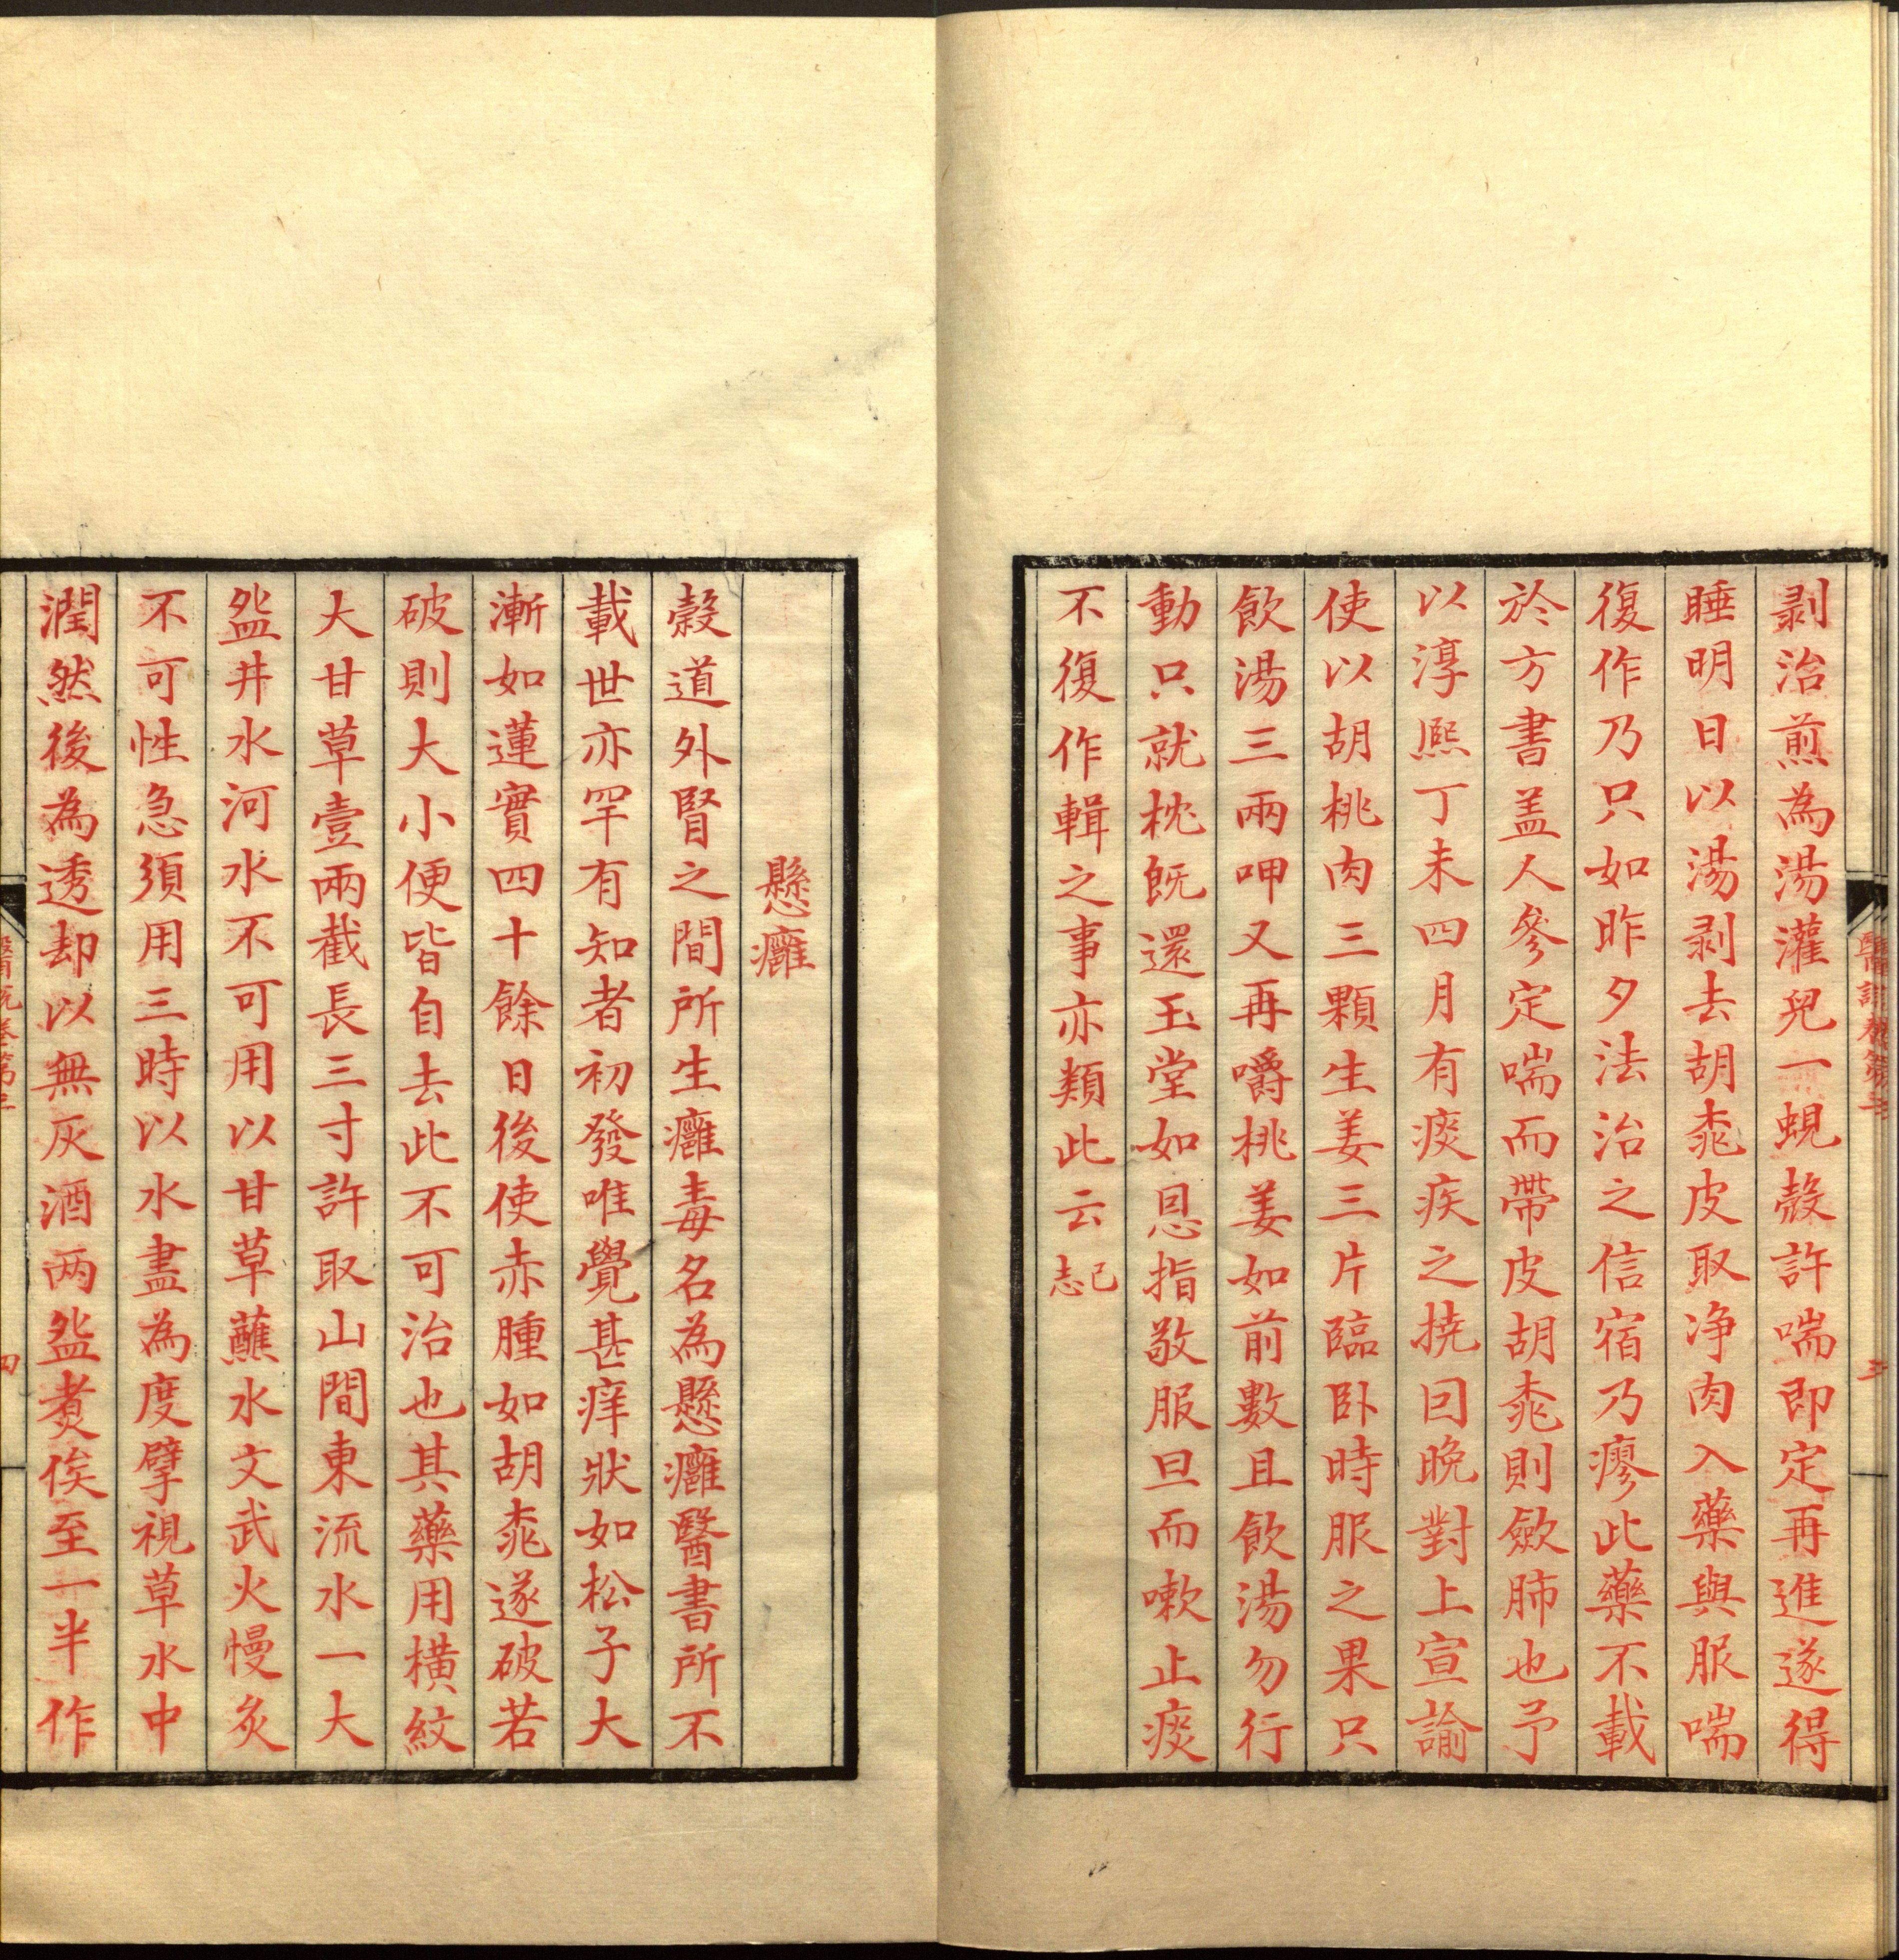 剥治煎為湯灌兒一蜆殼許喘即定再進遂得
睡明日以湯剥去胡桃皮取净肉入藥與服喘
復作乃只如昨夕法治之信宿乃瘳此藥不載
於方書盖人參定喘而帶皮胡桃則斂肺也予
以淳熙丁未四月有痰疾之撓囙晚對上宣諭
使以胡桃肉三顆生姜三片臨卧時服之果只
飲湯三兩呷又再嚼桃姜如前數且飲湯勿行
動只就枕既還玉堂如恩指敬服旦而嗽止痰
不復作輯之事亦類此云己志
懸癰
榖道外腎之間所生癰毒名為懸癰醫書所不
載世亦罕有知者初發唯覺甚痒狀如松子大
漸如蓮實四十餘日後使赤腫如胡桃遂破若
破則大小便皆自去此不可治也其藥用橫紋
大甘草壹兩截長三寸許取山間東流水一大
盌井水河水不可用以甘草蘸水文武火慢炙
不可性急須用三時以水盡為度擘視草水中
潤然後為透却以無灰酒两盌煑俟至一半作
醫說卷第三
四